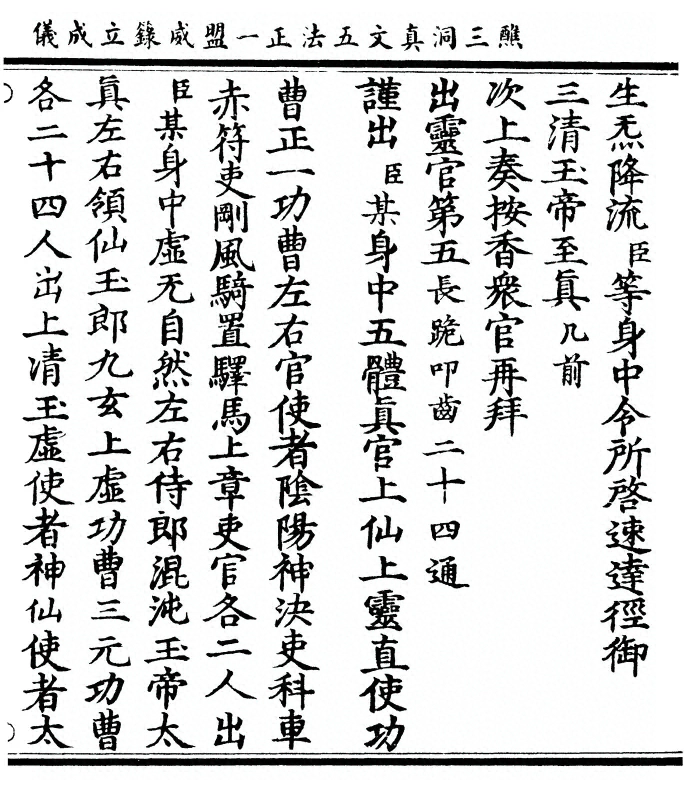 醮三洞真文五法正一盟威籙立成儀
生炁降流臣等身中令所啓速達徑御
三清玉帝至眞几前
次上奏按香衆官再拜
出靈官第五長跪叩齒二十四通
謹出臣某身中五體眞官上仙上靈直使功
曹正一功曹左右官使者陰陽神決吏科車
赤符吏剛風騎置驛馬上章吏官各二人出
臣某身中虛无自然左右侍郎混沌玉帝太
眞左右領仙玉郎九玄上虛功曹三元功曹
各二十四人出上清玉虛使者神仙使者太